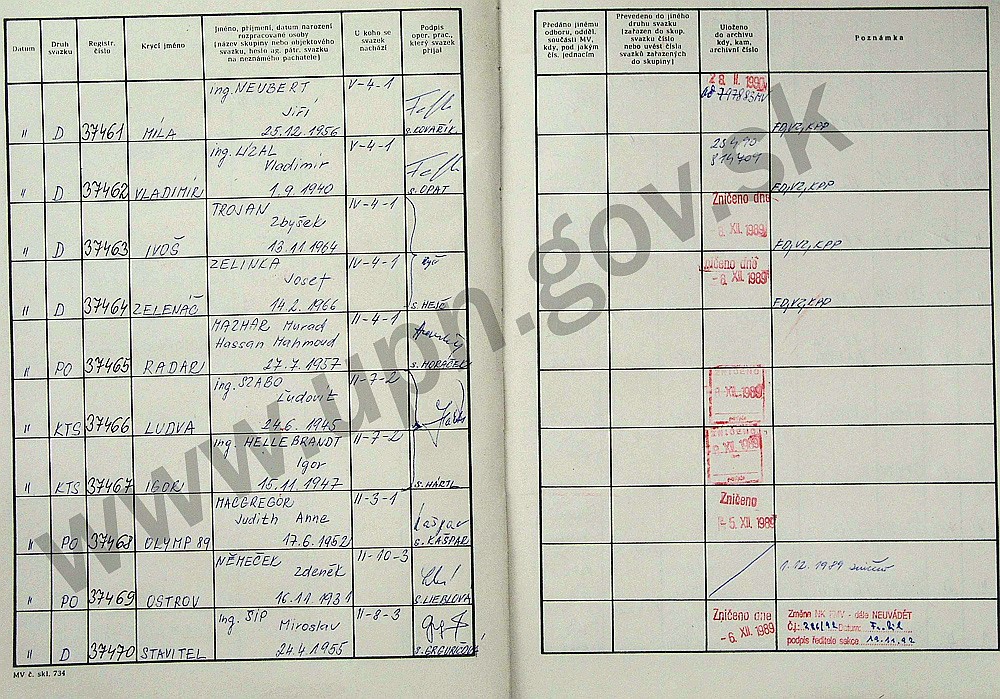 Datum
Druh svazku
Registr. číslo
Krycí jméno
Jméno, příjmení, datum narození
rozpracované osoby
(název skupiny nebo objektového
svazku, heslo ag. pátr. svazku
na neznámého pachatele)
U koho se
svazek
nachází
Podpis
oper. prac.,
který svazek
přijal
Předáno jinému
odboru, odděl.
součásti MV,
kdy, pod jakým
čís. jednacím
Převedeno do jiného
druhu svazku
(zařazen do skup.
svazku číslo
nebo uvést čísla
svazků zařazených
do skupiny)
Uloženo
do archivu
kdy, kam,
archivní číslo
Poznámka
ing. NEUBERT V-4-1
Jiří
" D 37461 MÍLA 25.12.1956 s. KOVAŘÍK
797883MV
FD,VZ,KPP
ing. LÍZAL V-4-1
Vladimír
" D 37462 VLADIMÍR 1.9.1940 s. OPAT
FD,VZ,KPP
TROJAN IV-4-1
Zbyšek
" D 37463 IVOŠ 13.11.1964
Zničeno dne
-8. XII. 1989
FD,VZ,KPP
ZELINKA IV-4-1
Josef
" D 37464 ZELENÁČ 14.2.1966 s. HEJČ
Zničeno dne
-6. XII. 1989
FD,VZ,KPP
MAZHAR Murad II-4-1
Hassan Mahmoud
" PO 37465 RADAR 27.7.1957 s. HORÁČEK
ing. SZABO II-7-2
Ľudovít
" KTS 37466 LUDVA 24.6.1945
ZNIČENO
XII. 1989
ing. HELLEBRANDT II-7-2
Igor
" KTS 37467 IGOR 15.11.1947 s. HÄRTL
ZNIČENO
XII. 1989
MACGREGOR II-3-1
Judith Anne
" PO 37468 OLYMP 89 17.6.1952 Kašpar
s. KAŠPAR
Zničeno
-5. XII. 1989
NĚMEČEK II-10-3
Zdeněk
" PO 37469 OSTROV 16.11.1931 s. LIEBLOVÁ
1.12.1989 zničeno
ing. ŠÍP II-8-3
Miroslav
" D 37470 STAVITEL 24.4.1955
Zničeno dne
-6. XII. 1989
Změna NK FMV - dále NEUVÁDĚT
Č.j.: 286/92 Datum:
podpis ředitele sekce 19.11.92
MV č. skl. 734
www.upn.gov.sk